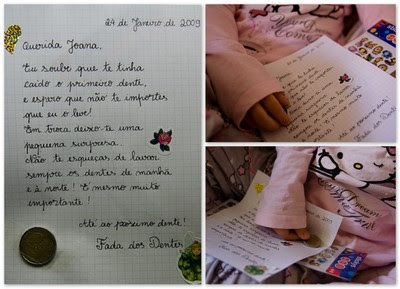 24 de Janeiro de 2009
Querida Joana,
Eu soube que te tinha
caído o primeiro dente,
e espero que não te importes
que eu o leve!
Em troca deixo-te uma
pequena surpresa.
Não te esqueças de lavar
sempre os dentes de manhã
e à noite! É mesmo muito
importante!
Até ao próximo dente!
Fada dos Dentes